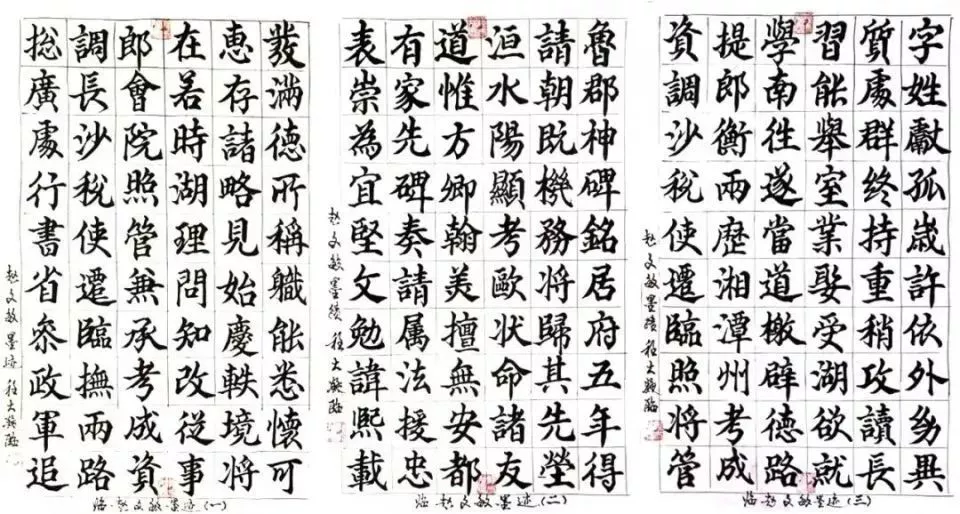 發滿德所稱職能悉懷可
惠存諸略見始慶軼境將
在若時湖理問知改從事
郎會院照管兼承考成資
調長沙稅使遷臨撫兩路
捴廣處行書省叅政軍追
趙文敏墨迹 程大
临赵文敏墨迹(一)
魯郡神碑銘居府五年得
請朝既機務將歸其先塋
洹水陽顯考歐状命諸友
道惟方卿翰美擅無安都
有家先碑奏請属法援忠
表崇為宜堅文勉諱熙載
趙文敏墨蹟 程大
临赵文敏墨迹(二)
字姓獻孤歲許依外幼異
質處群終持重稍攻讀長
習能舉室業娶受湖欲就
學南往遂當道檄辟德路
提郎衡兩歷湘潭州考成
資調沙稅使遷臨照將管
趙文敏墨蹟 程大
临赵文敏墨迹(三)